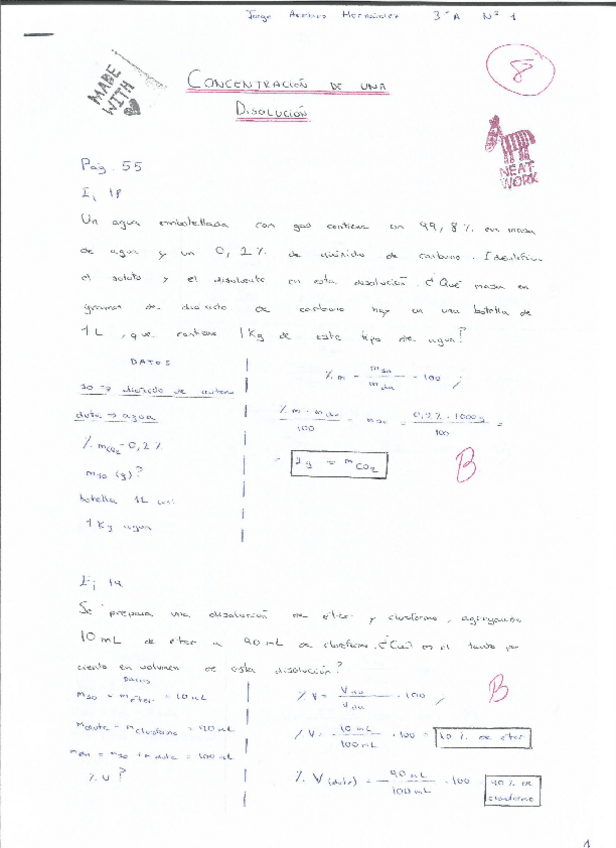 Jorge Hernández 3ºA Nº 1
MADE
WITH
CONCENTRACIÓN DE UNA
DISOLUCIÓN
8
NEAT
WORK
Pág. 55
Ej 18
Un agua embotellada con gas contiene un 99,8% en masa
de agua y un 0,2% de dióxido de carbono. Identifica
el soluto y el disolvente en esta disolución. ¿Qué masa en
gramos de dióxido de carbono hay en una botella de
1L, que contiene 1Kg de este tipo de agua?
DATOS
so → dióxido de carbono
dote → agua
% mCO2 = 0,2%
mso (g)?
botella 1L con:
1 Kg agua
% m = mso / mdon · 100 ;
% m · mdon / 100 = mso = 0,2% · 1000g / 100 =
= 2g = mCO2
B
Ej 19
Se prepara una disolución de éter y cloroformo, agregando
10 mL de éter a 90 mL de cloroformo. ¿Cuál es el tanto por
ciento en volumen de esta disolución?
DATOS
mso = méter = 10 mL
mdote = mcloroformo = 90 mL
mdon = mso + mdote = 100 mL
% V?
% V = Vso / Vdon · 100 ;
% V = 10 mL / 100 mL · 100 = 10 % de éter
% V (dote) = 90 mL / 100 mL · 100 90 % de cloroformo
B
1